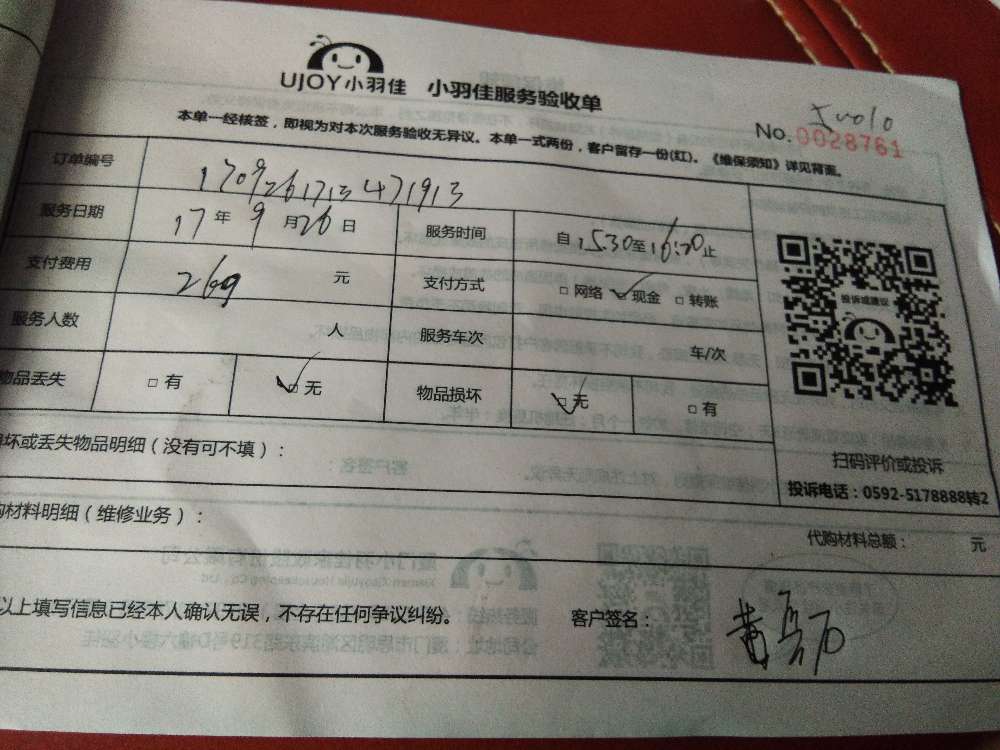 UJOY小羽佳 小羽佳服务验收单
No.0028761
本单一经核签，即视为对本次服务验收无异议。本单一式两份，客户留存一份(红)。《维保须知》详见背面。
订单编号 170926171347 1913
服务日期 17年9月26日 服务时间 自15:30至16:20止
支付费用 269元 支付方式 □网络 ✓现金 □转账
服务人数 人 服务车次 车/次
物品丢失 □有 ✓□无 物品损坏 ✓□无 □有
投诉或建议
扫码评价或投诉
投诉电话：0592-5178888转2
坏或丢失物品明细（没有可不填）：
购材料明细（维修业务）：
代购材料总额： 元
以上填写信息已经本人确认无误，不存在任何争议纠纷。 客户签名：